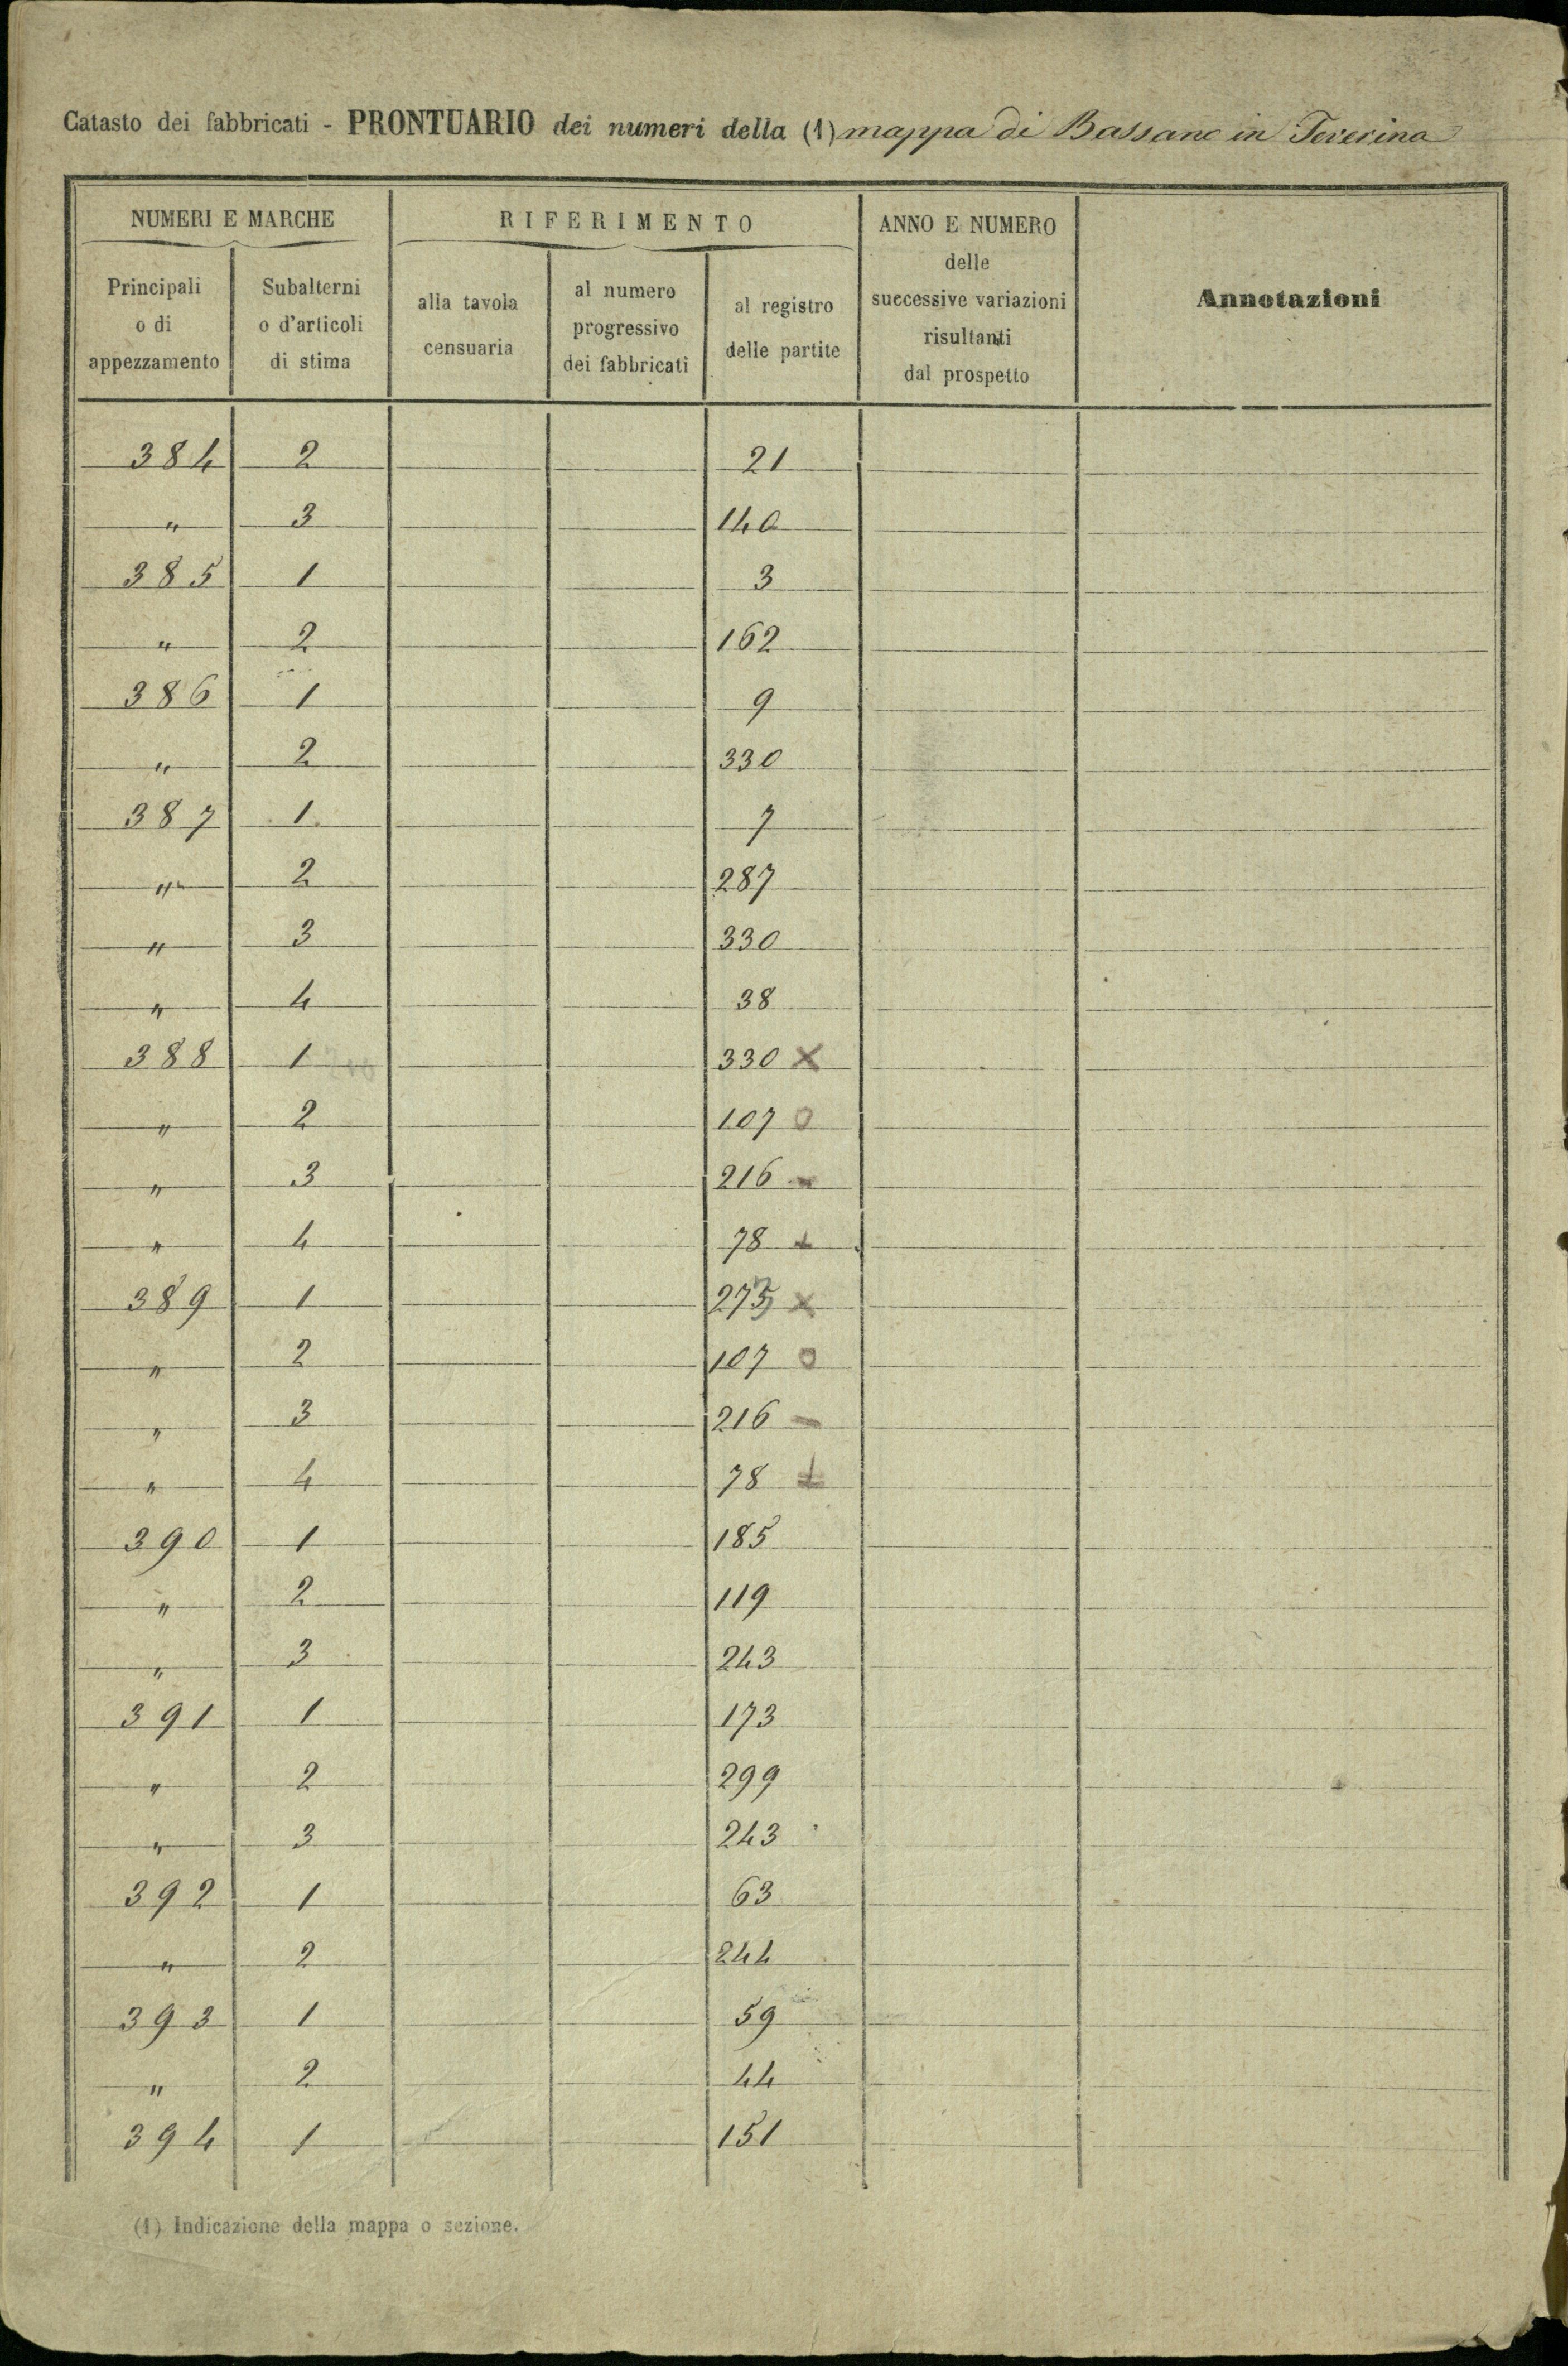 Catasto dei fabbricati - PRONTUARIO dei numeri della (1) mappa di Bassano in Teverina
NUMERI E MARCHE
RIFERIMENTO
ANNO E NUMERO
delle
successive variazioni
risultanti
dal prospetto
Annotazioni
Principali
o di
appezzamento
Subalterni
o d'articoli
di stima
alla tavola
censuaria
al numero
progressivo
dei fabbricati
al registro
delle partite
384 2 21
" 3 140
385 1 3
" 2 162
386 1 9
" 2 330
387 1 7
" 2 287
" 3 330
" 4 38
388 1 330 X
" 2 107 O
" 3 216 -
" 4 78 +
389 1 X
" 2 107 O
" 3 216 -
" 4 78 +
390 1 185
" 2 119
" 3 243
391 1 173
" 2 299
" 3 243
392 1 63
" 2 244
393 1 59
" 2 44
394 1 151
(1) Indicazione della mappa o sezione.